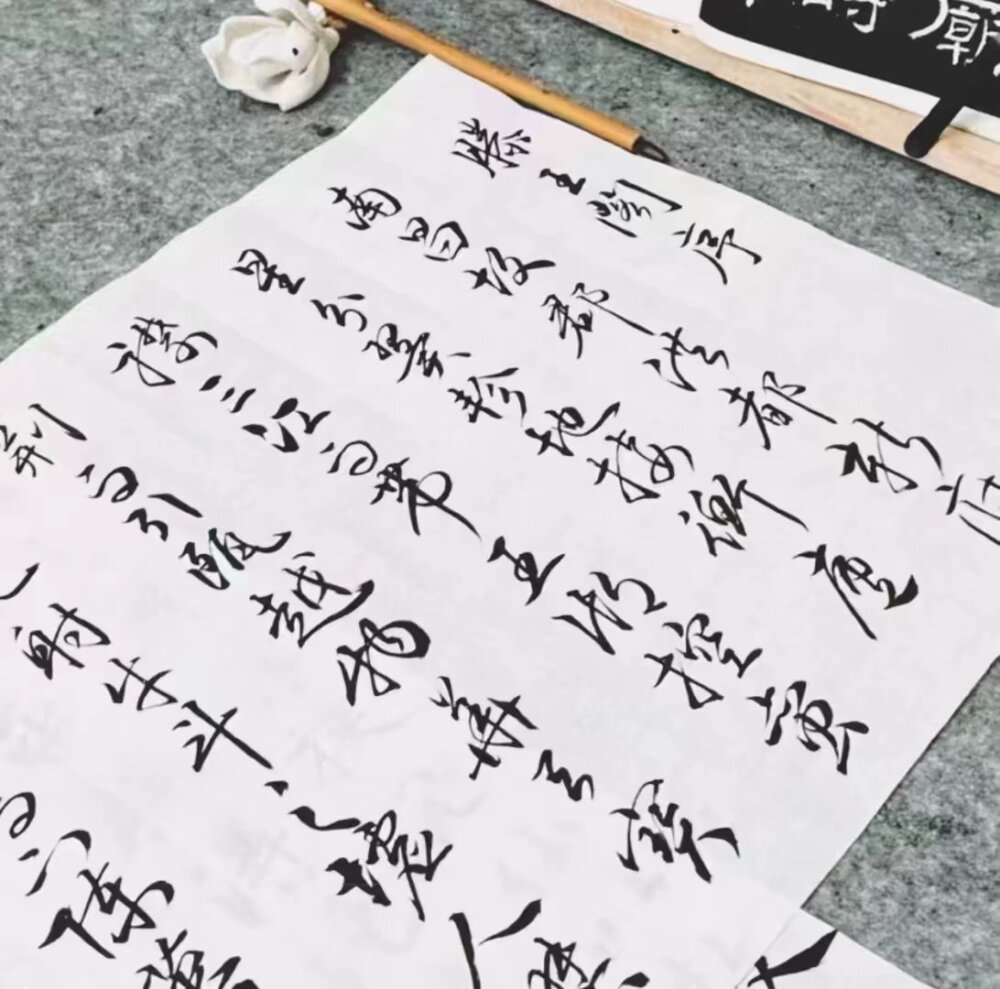 滕王閣序
南昌故郡洪都新府
星分翼軫地接衡廬
襟三江而帶五湖控蛮
荆而引甌越物華天寶
射牛斗之墟人傑
下陳蕃
廟